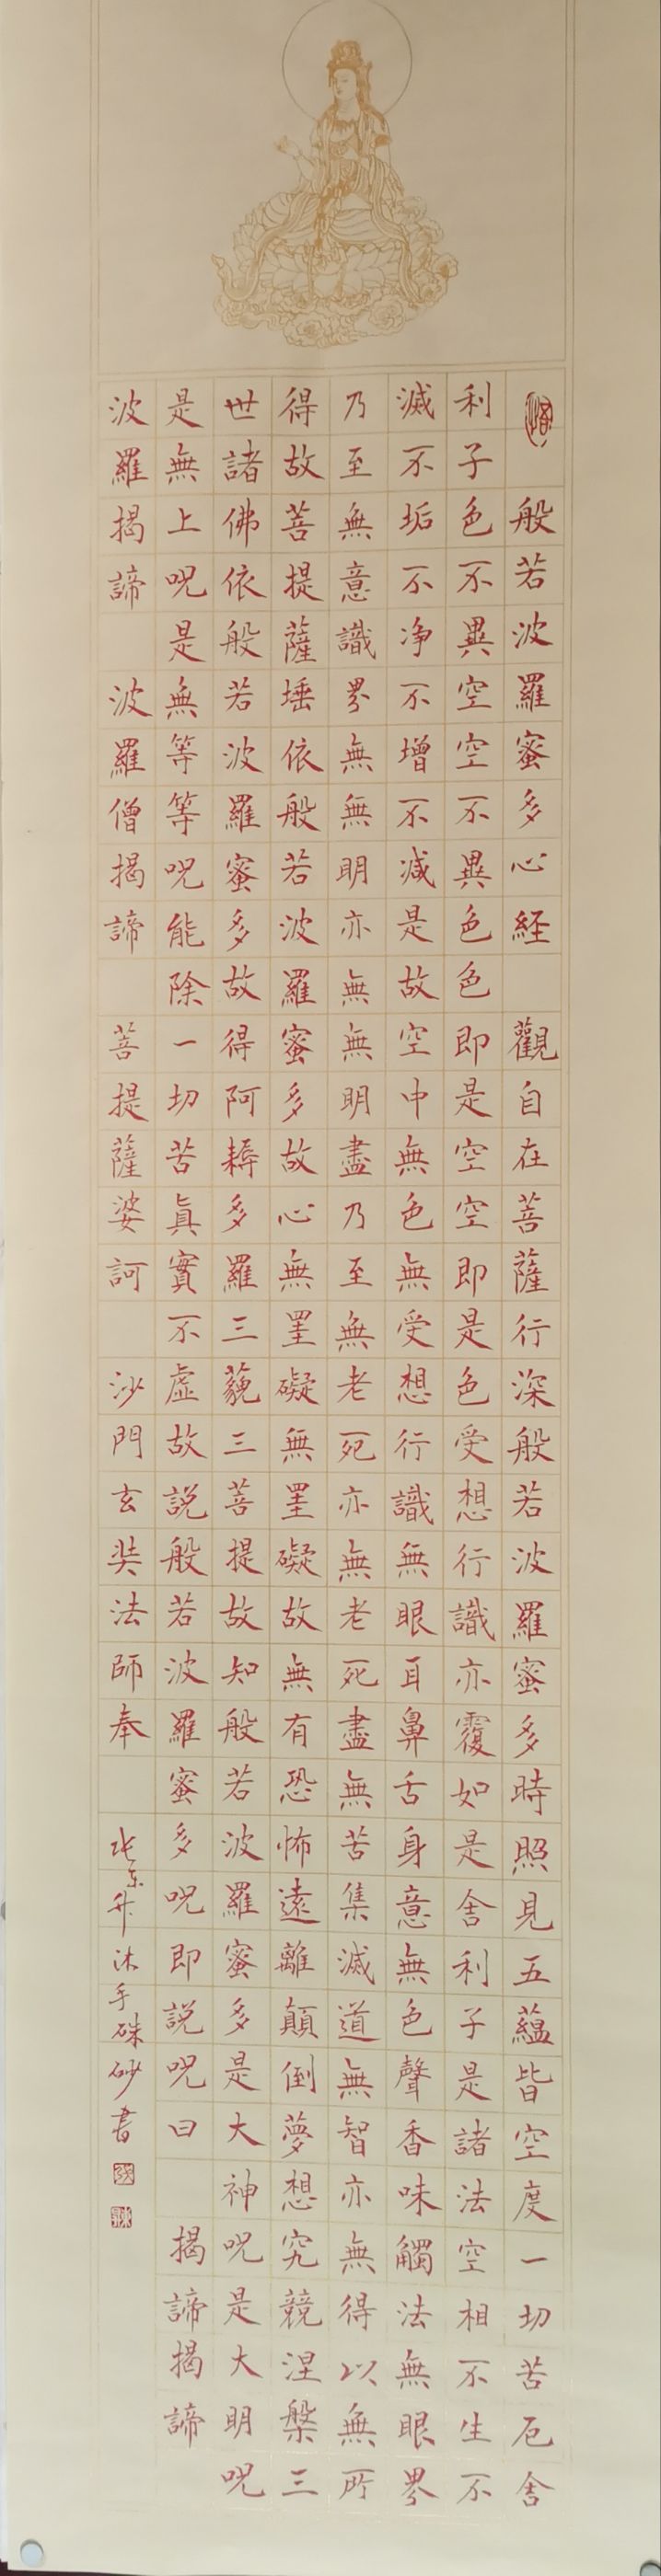 般若波羅蜜多心経 觀自在菩薩行深般若波羅蜜多時照見五蘊皆空度一切苦厄舍
利子色不異空空不異色色即是空空即是色受想行識亦覆如是舍利子是諸法空相不生不
滅不垢不净不增不减是故空中無色無受想行識無眼耳鼻舌身意無色聲香味觸法無眼界
乃至無意識界無無明亦無無明盡乃至無老死亦無老死盡無苦集滅道無智亦無得以無所
得故菩提薩埵依般若波羅蜜多故心無罣礙無罣礙故無有恐怖遠離顛倒夢想究競涅槃三
世諸佛依般若波羅蜜多故得阿耨多羅三藐三菩提故知般若波羅蜜多是大神呪是大明呪
是無上呪是無等等呪能除一切苦真實不虛故説般若波羅蜜多呪即説呪曰 揭諦揭諦
波羅揭諦 波羅僧揭諦 菩提薩婆訶 沙門玄奘法師奉 张东升沐手硃砂書